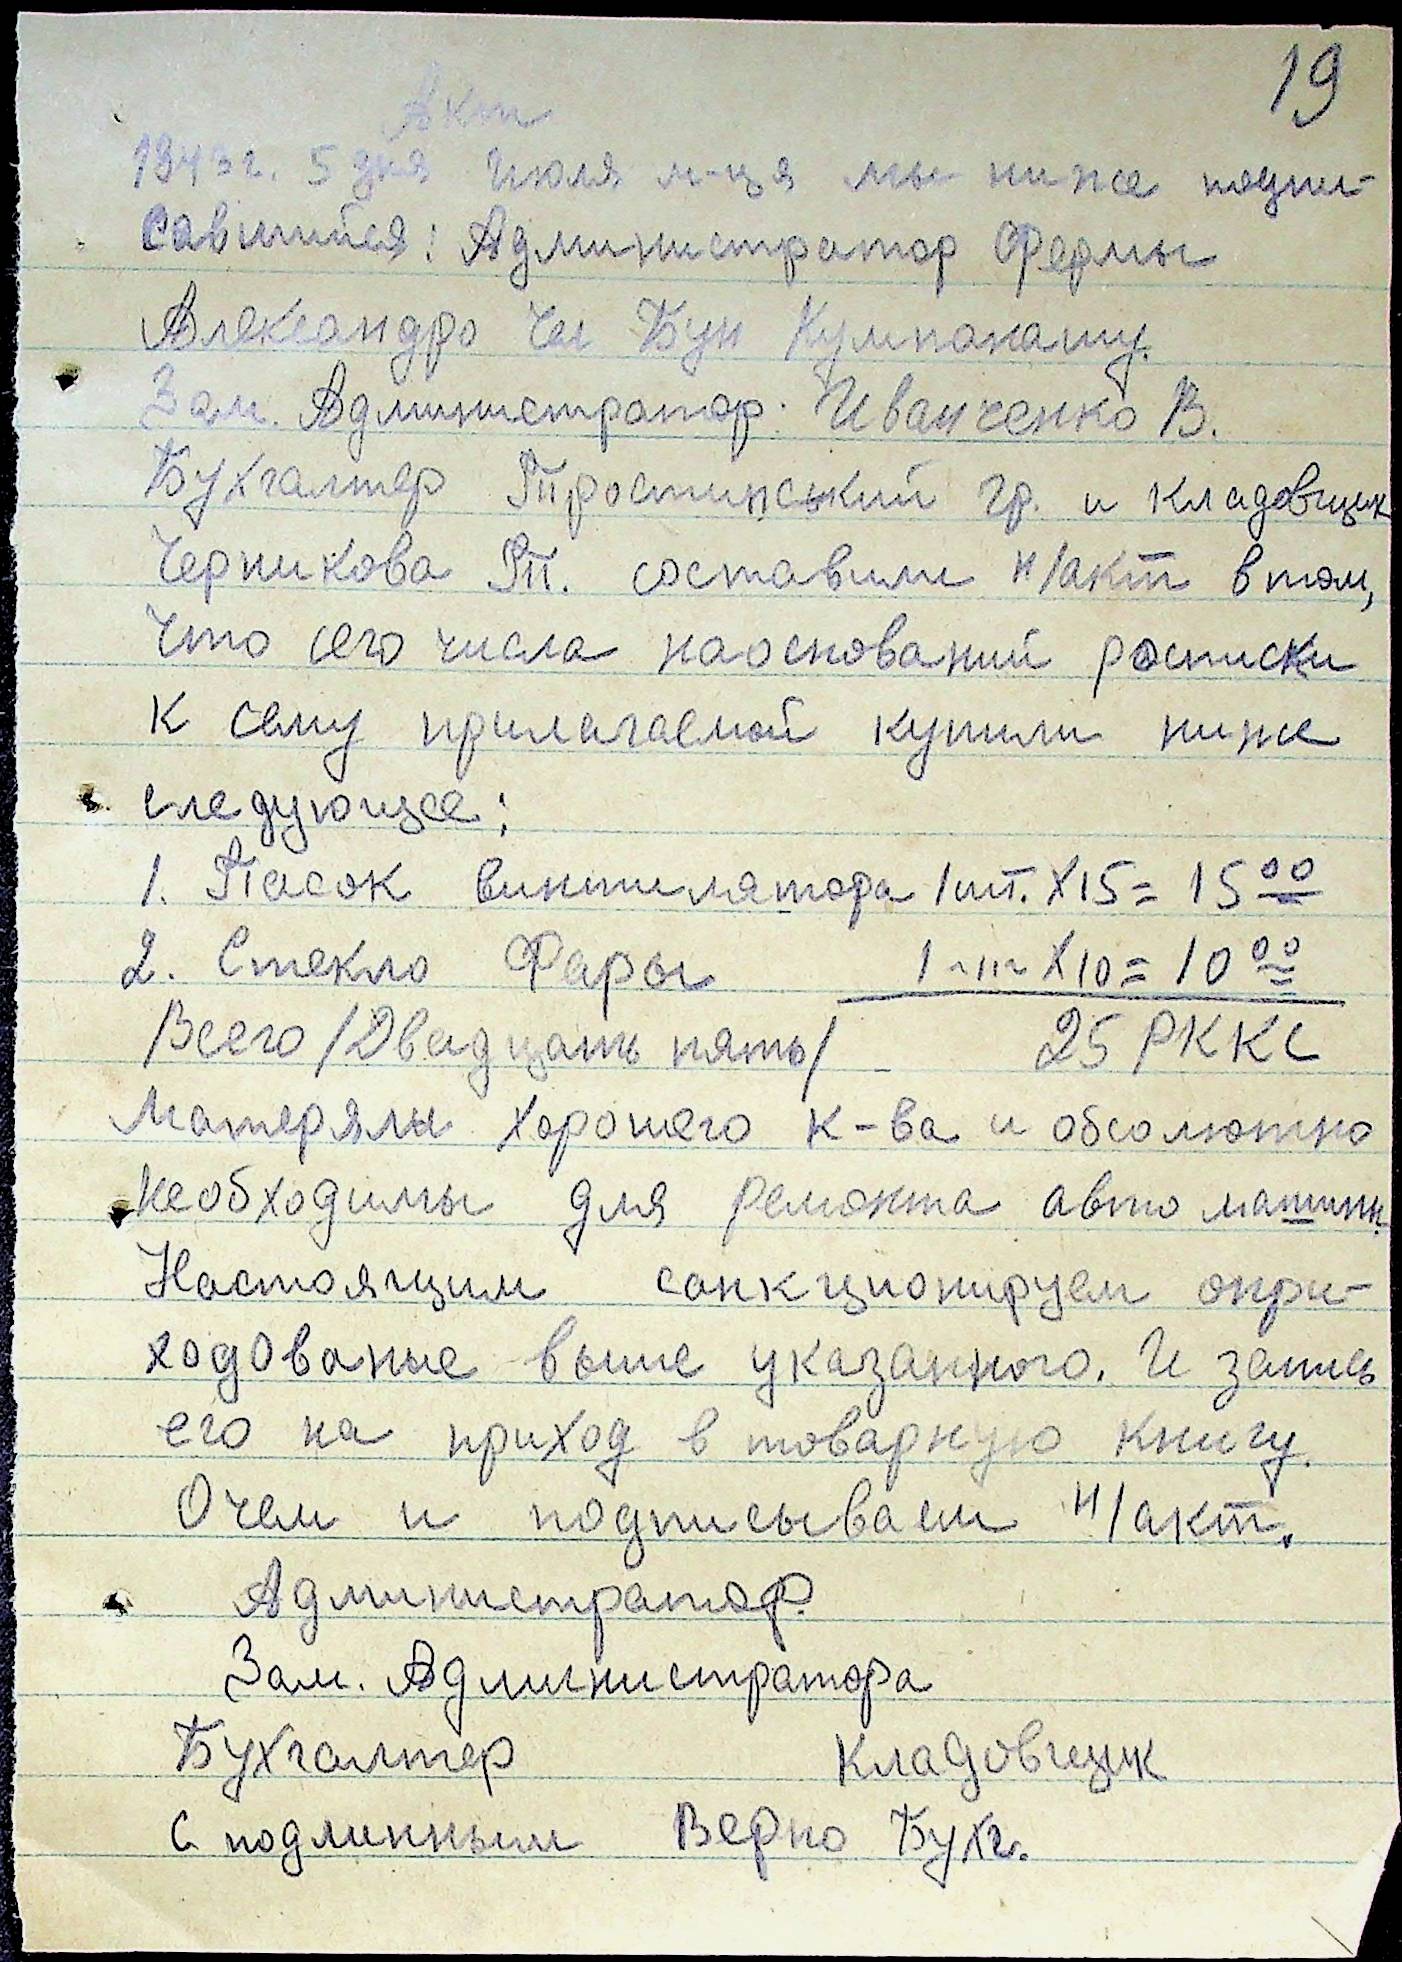 19
Акт
1943 г. 5 дня Июля м-ця мы ниже подпи-
савшийся: Администратор Фермы
Александро Чи Бун Кумпанашу.
Зам. Администратор. Иванченко В.
Бухгалтер Тростинський Гр. и кладовщик
Черникова Т. составили н/акт в том,
Что сего числа наоснований росписки
К сему прилагаемой купили ниже
следующее;
1. Пасок винтилятора 1 шт. Х15 = 15 00
2. Стекло Фары 1 -"- Х10 = 10 00
Всего /Двадцать пять/ 25 РККС
Матерялы хорошего к-ва и обсолютно
необходимы для ремонта авто машин.
Настоящим санкционируем опри-
ходованые выше указанного. И запись
его на приход в товарную книгу.
Очем и подписываем н/акт.
Администратор.
Зам. Администратора
Бухгалтер Кладовщик
С подлинным Верно Бухг.